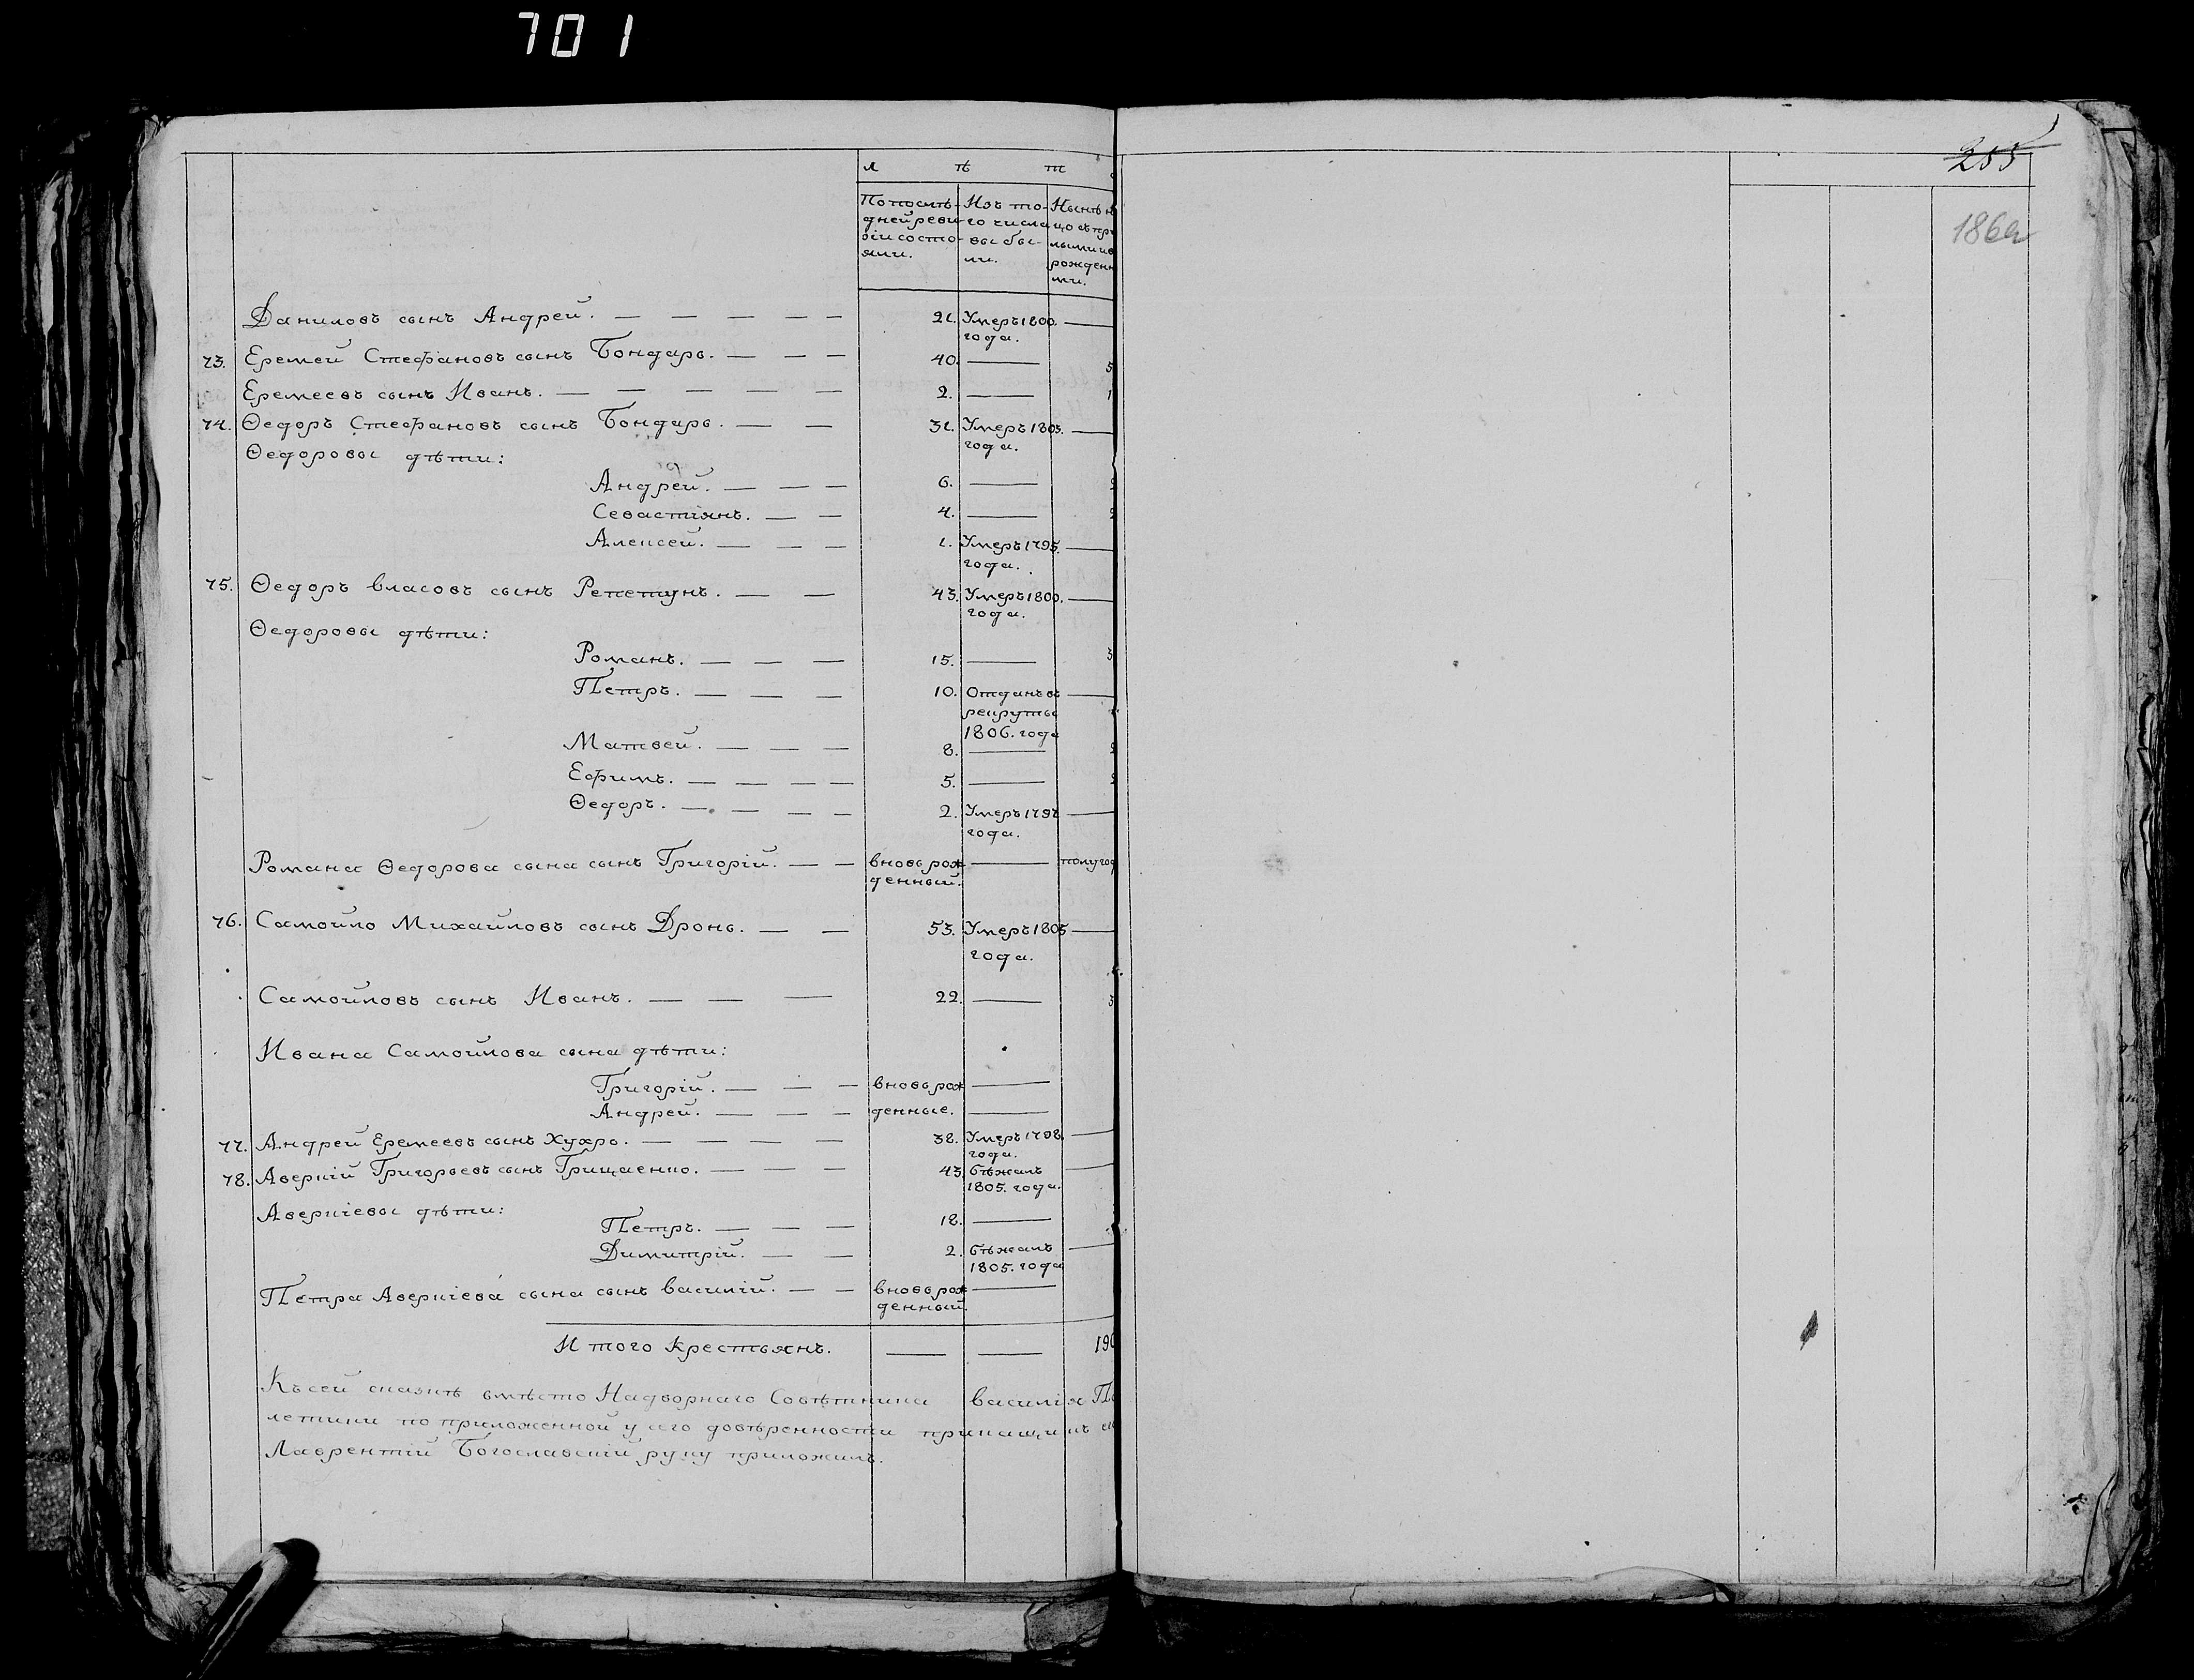 701
255
186а
л ѣ т
По послѣ- Изъ то- Нынѣ
дней реви- го числа
зіи состо- выбы-
яли. ли. рожден
ми.
Даниловъ сынъ Андрей. — — — — — 21. Умеръ 1800. —
года.
73. Еремей Стефановъ сынъ Бондарь. — — — 40. — 5
Еремеевъ сынъ Иванъ. — — — — — 2. — 1
74. Ѳедоръ Стефановъ сынъ Бондарь. — — 31. Умеръ 1803. —
года.
Ѳедоровы дѣти:
Андрей. — — — 6. — 2
Севастіянъ. — — 4. — 2
Алексей. — — — 1. Умеръ 1795. —
года.
75. Ѳедоръ Власовъ сынъ Репетунъ. — — 43. Умеръ 1800. —
года.
Ѳедоровы дѣти:
Романъ. — — — 15. — 3
Петръ. — — — 10. Отданъ въ —
рекруты
1806. года
Матвей. — — — 8. — 2
Ефимъ. — — — — 5. — 2
Ѳедоръ. — — — — 2. Умеръ 1797 —
года.
Романа Ѳедорова сына сынъ Григорій. — — вновь рож — полугод
денный.
76. Самойло Михайловъ сынъ Дронь. — — 53. Умеръ 1805 —
года.
Самойловъ сынъ Иванъ. — — — 22. — 3
Ивана Самойлова сына дѣти:
Григорій. — — — вновь рож —
Андрей. — — — денные. —
77. Андрей Еремеевъ сынъ Хухро. — — — — 38. Умеръ 1798. —
года.
78. Аверкій Григорьевъ сынъ Грищенко. — — — 43. бѣжалъ —
1805. года.
Аверкіевы дѣти:
Петръ. — — — 18. —
Димитрій. — — 2. бѣжалъ —
1805. года
Петра Аверкіева сына сынъ Василій. — — вновь рож —
денный.
Итого крестьянъ. — — 190
Къ сей сказкѣ вмѣсто Надворнаго Совѣтника Василія По
летики по приложенной у сего довѣренности прикащикъ ег
Лаврентій Богославскій руку приложилъ.